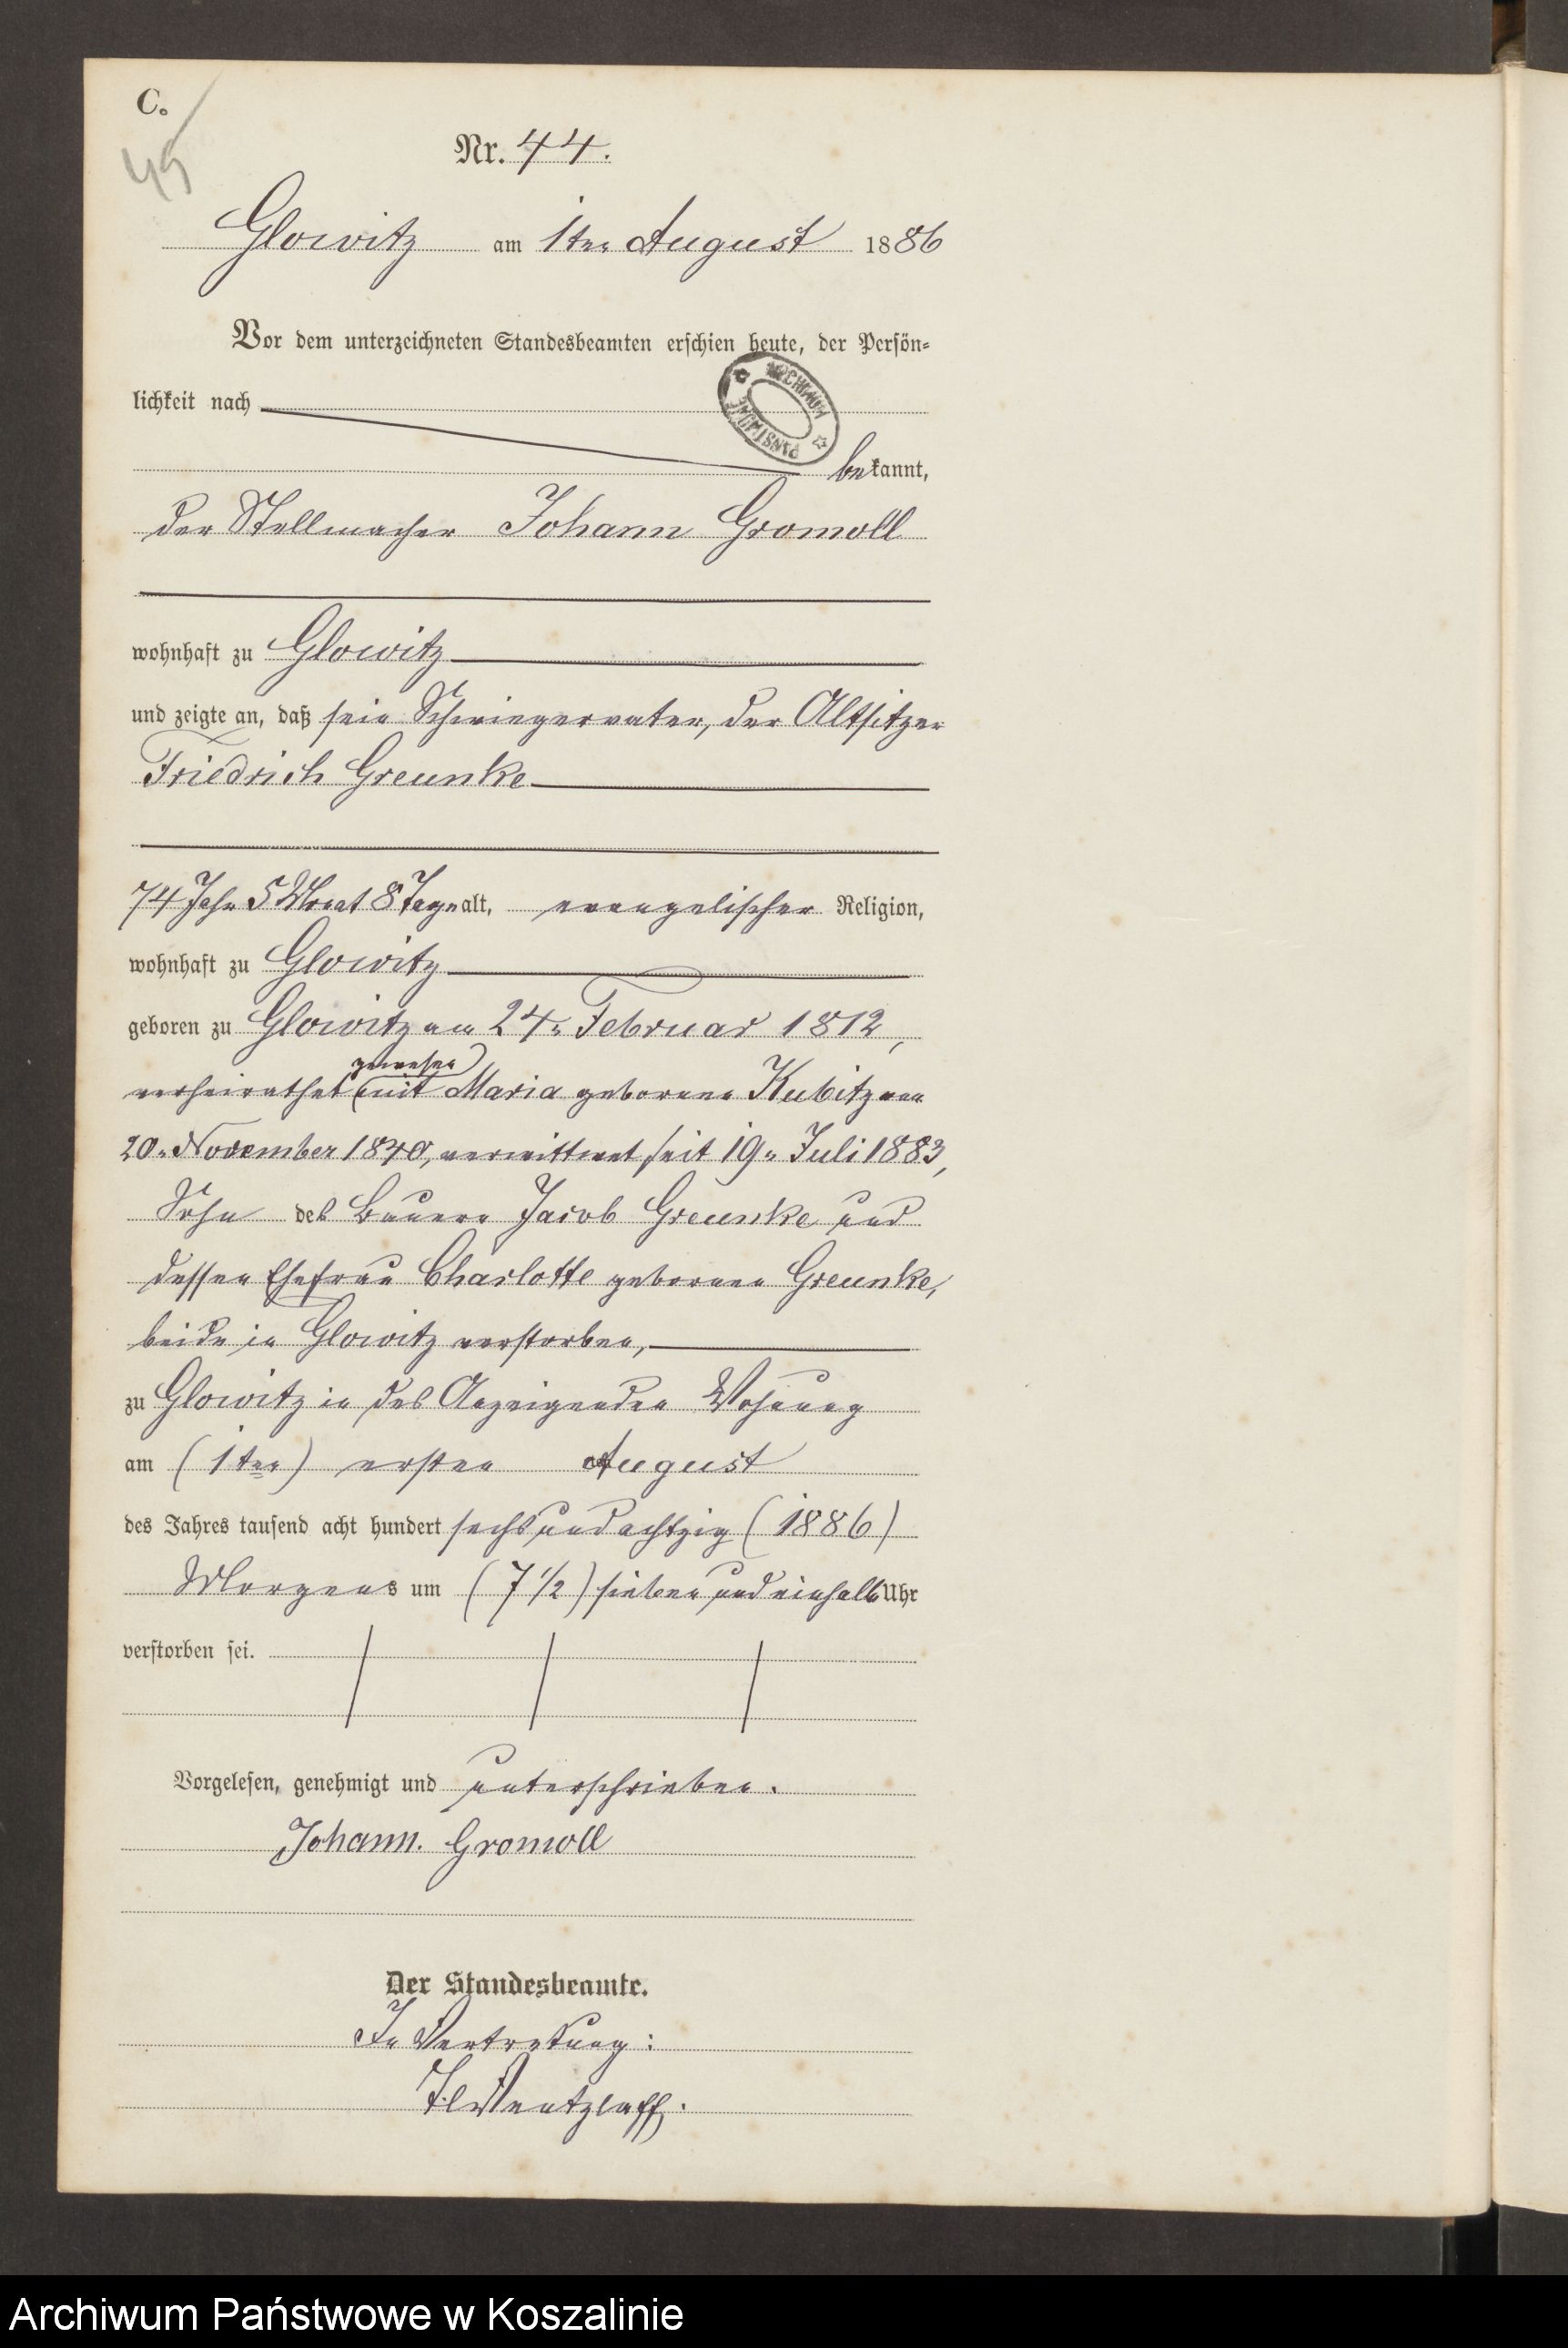 C.
45
Nr. 44.
Glowitz am 1ten August 1886
Vor dem unterzeichneten Standesbeamten erschien heute, der Persön-
lichkeit nach
ARCHIWUM PAŃSTWOWE
bekannt,
der Stellmacher Johann Gromoll
wohnhaft zu Glowitz
und zeigte an, daß sein Schwiegervater, der Altsitzer
Friedrich Greunke
74 Jahr 5 Monat 8 Tage alt, evangelischer Religion,
wohnhaft zu Glowitz
geboren zu Glowitz am 24. Februar 1812,
gewesen
verheirathet mit Maria geborene Kubitz vom
20. November 1840, verwittwet seit 19. Juli 1883,
Sohn des Bauern Jacob Greunke und
dessen Ehefrau Charlotte geborenen Greunke,
beide in Glowitz verstorben,
zu Glowitz in des Anzeigenden Wohnung
am (1ten) ersten August
des Jahres tausend acht hundert sechs und achtzig (1886)
Morgens um (7 1/2) sieben und einhalb Uhr
verstorben sei.
Vorgelesen, genehmigt und unterschrieben.
Johann. Gromoll
Der Standesbeamte.
In Vertretung:
Wentzlaff.
Archiwum Państwowe w Koszalinie